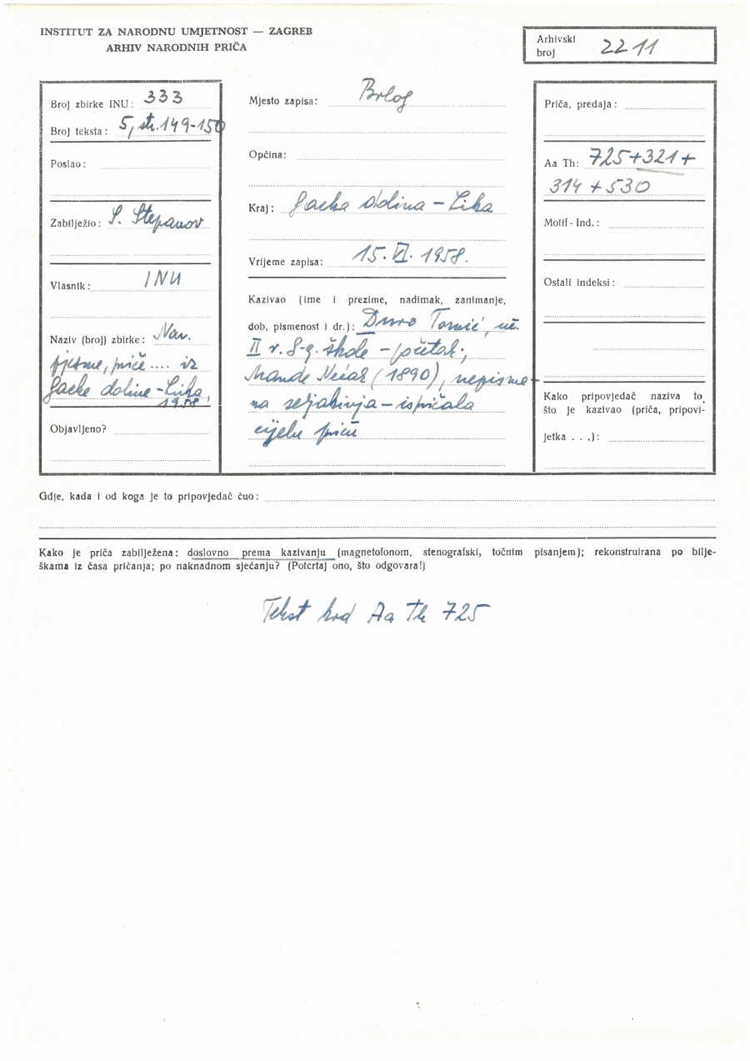 INSTITUT ZA NARODNU UMJETNOST — ZAGREB
ARHIV NARODNIH PRIČA
Arhivski broj 2211
Broj zbirke INU: 333
Broj teksta: 5, str. 149-150
Poslao:
Zabilježio: S. Stepanov
Vlasnik: INU
Naziv (broj) zbirke: Nar.
pjesme, priče .... iz
Gacke doline - Lika,
1958
Objavljeno?
Mjesto zapisa: Brlog
Općina:
Kraj: Gacka dolina - Lika
Vrijeme zapisa: 15. VI. 1958.
Kazivao (ime i prezime, nadimak, zanimanje,
dob, pismenost i dr.): Duro Tomić, uč.
II r. 8-g. škole - početak;
Mande (1890), nepisme-
na seljakinja - ispričala
cijelu priču
Priča, predaja:
Aa Th: 725+321+
314+530
Motif - Ind.:
Ostali indeksi:
Kako pripovjedač naziva to,
što je kazivao (priča, pripovi-
jetka . . .):
Gdje, kada i od koga je to pripovjedač čuo:
Kako je priča zabilježena: doslovno prema kazivanju (magnetofonom, stenografski, točnim pisanjem); rekonstruirana po bilje-
škama iz časa pričanja; po naknadnom sjećanju? (Potcrtaj ono, što odgovara!)
Tekst kod Aa Th 725